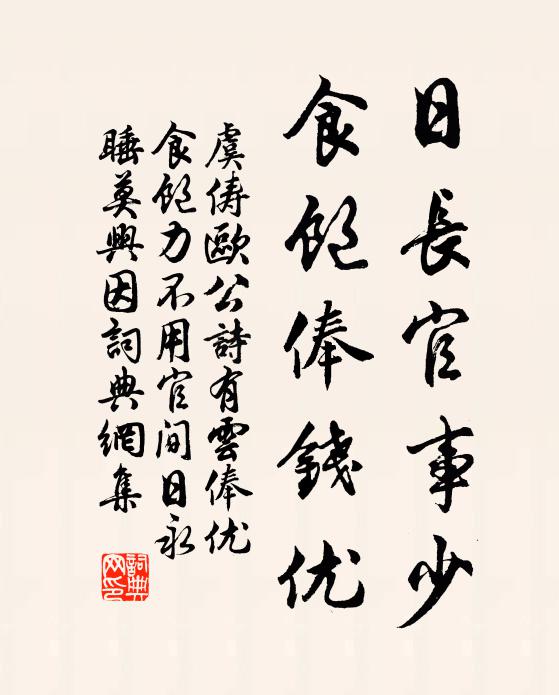 日長官事少
食飽俸錢优
虞俦歐公詩有雲俸优
食飽力不用官间日永
睡莫興因詞典網集
詞典
网印